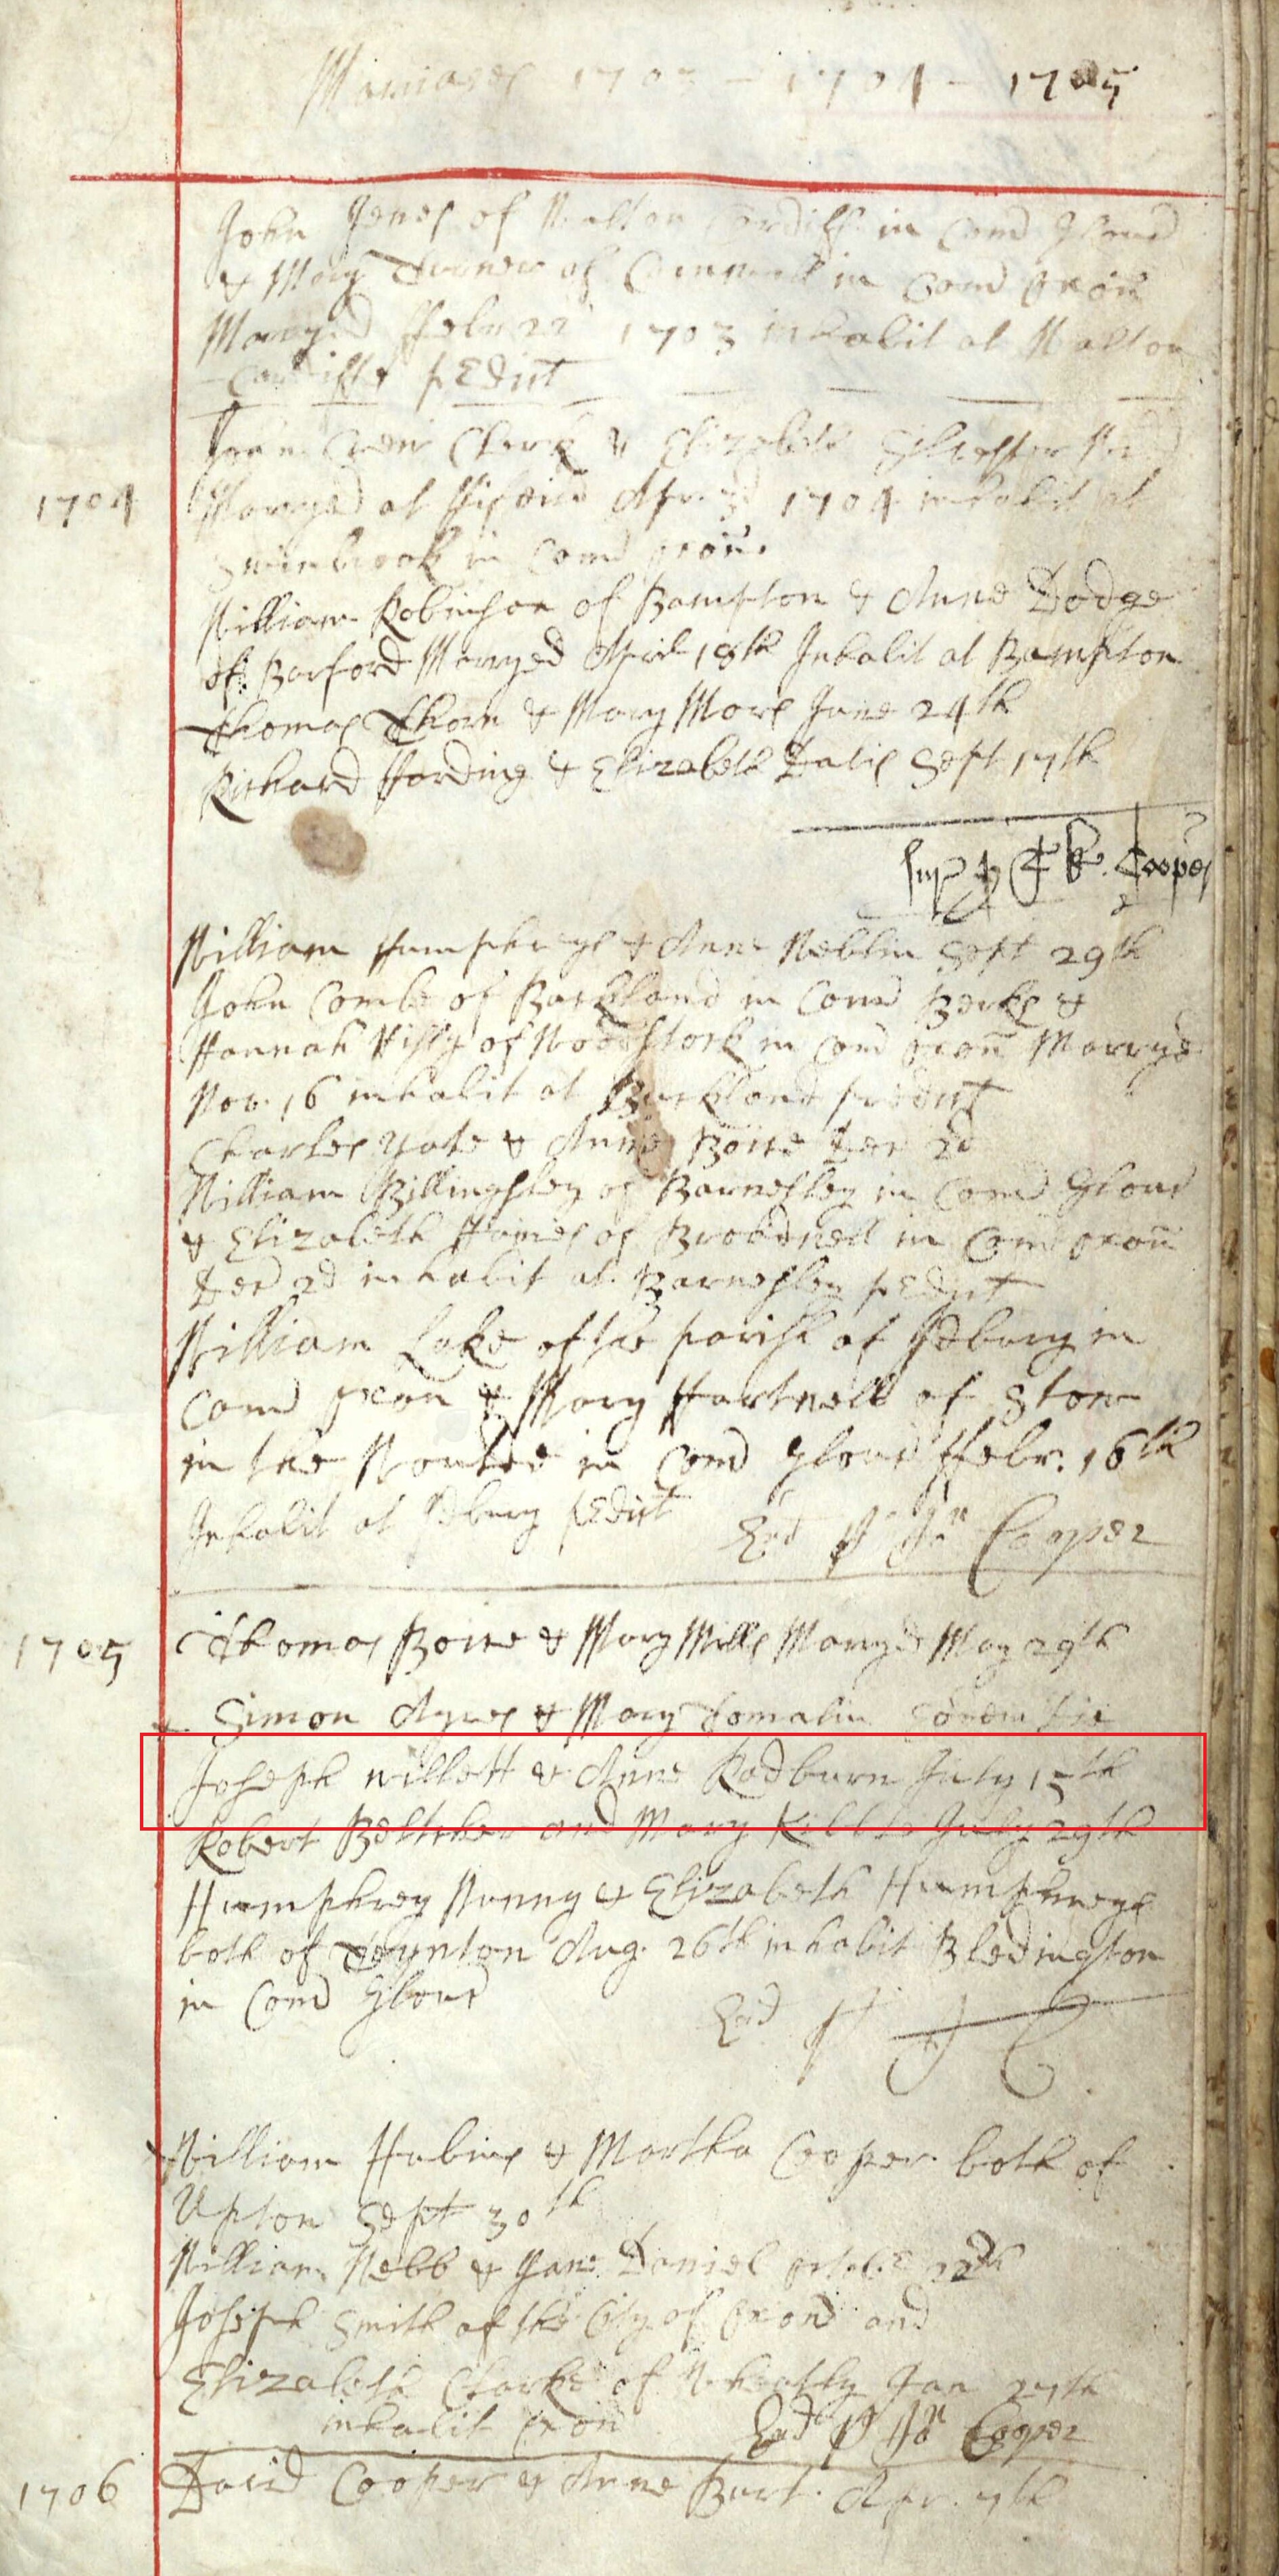 Marriages 1703 - 1704 - 1705
John Jones of Walton Cardiff in Com Glouc
& Mary Turner of Cornwell in Com Oxon
Marryed Febr 22 1703 inhabit at Walton
Cardiffe pdict
Clerk & Elizabeth
1704
Marryed at Apr. 3d 1704 inhabit at
Swinbrook in Com Oxon.
William Robinson of Bampton & Anne Dodge
of Barford Marryed April 18th Inhabit at Bampton
Thomas Thorn & Mary Mors June 24th
Richard Harding & Elizabeth Davis Sept 17th
Cooper
William Humphreys & Anne Neblin Sept 29th
John Combe of Buckland in Com Berks &
Hannah of Woodstock in Com Oxon Marryd
Nov. 16 inhabit at Buckland predict
Charles Yate & Anne Boice Dec 2d
William Billingsley of Barnesley in Com Glouc
& Elizabeth Haines of in Com Oxon
Dec 2d inhabit at Barnesley pdict
William Loke of the parish of Idbury in
Com Oxon & Mary Hartwell of Stow
in the Would in Com Glouc Febr. 16th
Inhabit at Idbury pdict Exd p Jn Cooper
1705
Thomas Boice & Mary Mills Marryd May 29th
Simon Ayres & Mary Tomalin Eodem die
Joseph Willett & Anne Radburn July 15th
Robert and Mary July 29th
Humphrey Nunny & Elizabeth Humphreys
both of Taynton Aug. 26th inhabit Bledington
in Com Glouc
Exd p J C
William Habins & Martha Cooper both of
Upton Sept 30th
William Webb & Jane Daniel 22th
Joseph Smith of the City of Oxon and
Elizabeth Clarke of Wheatly Jan 27th
inhabit Oxon Exd p Jn Cooper
1706
David Cooper & Anne Burt. Apr. 7th